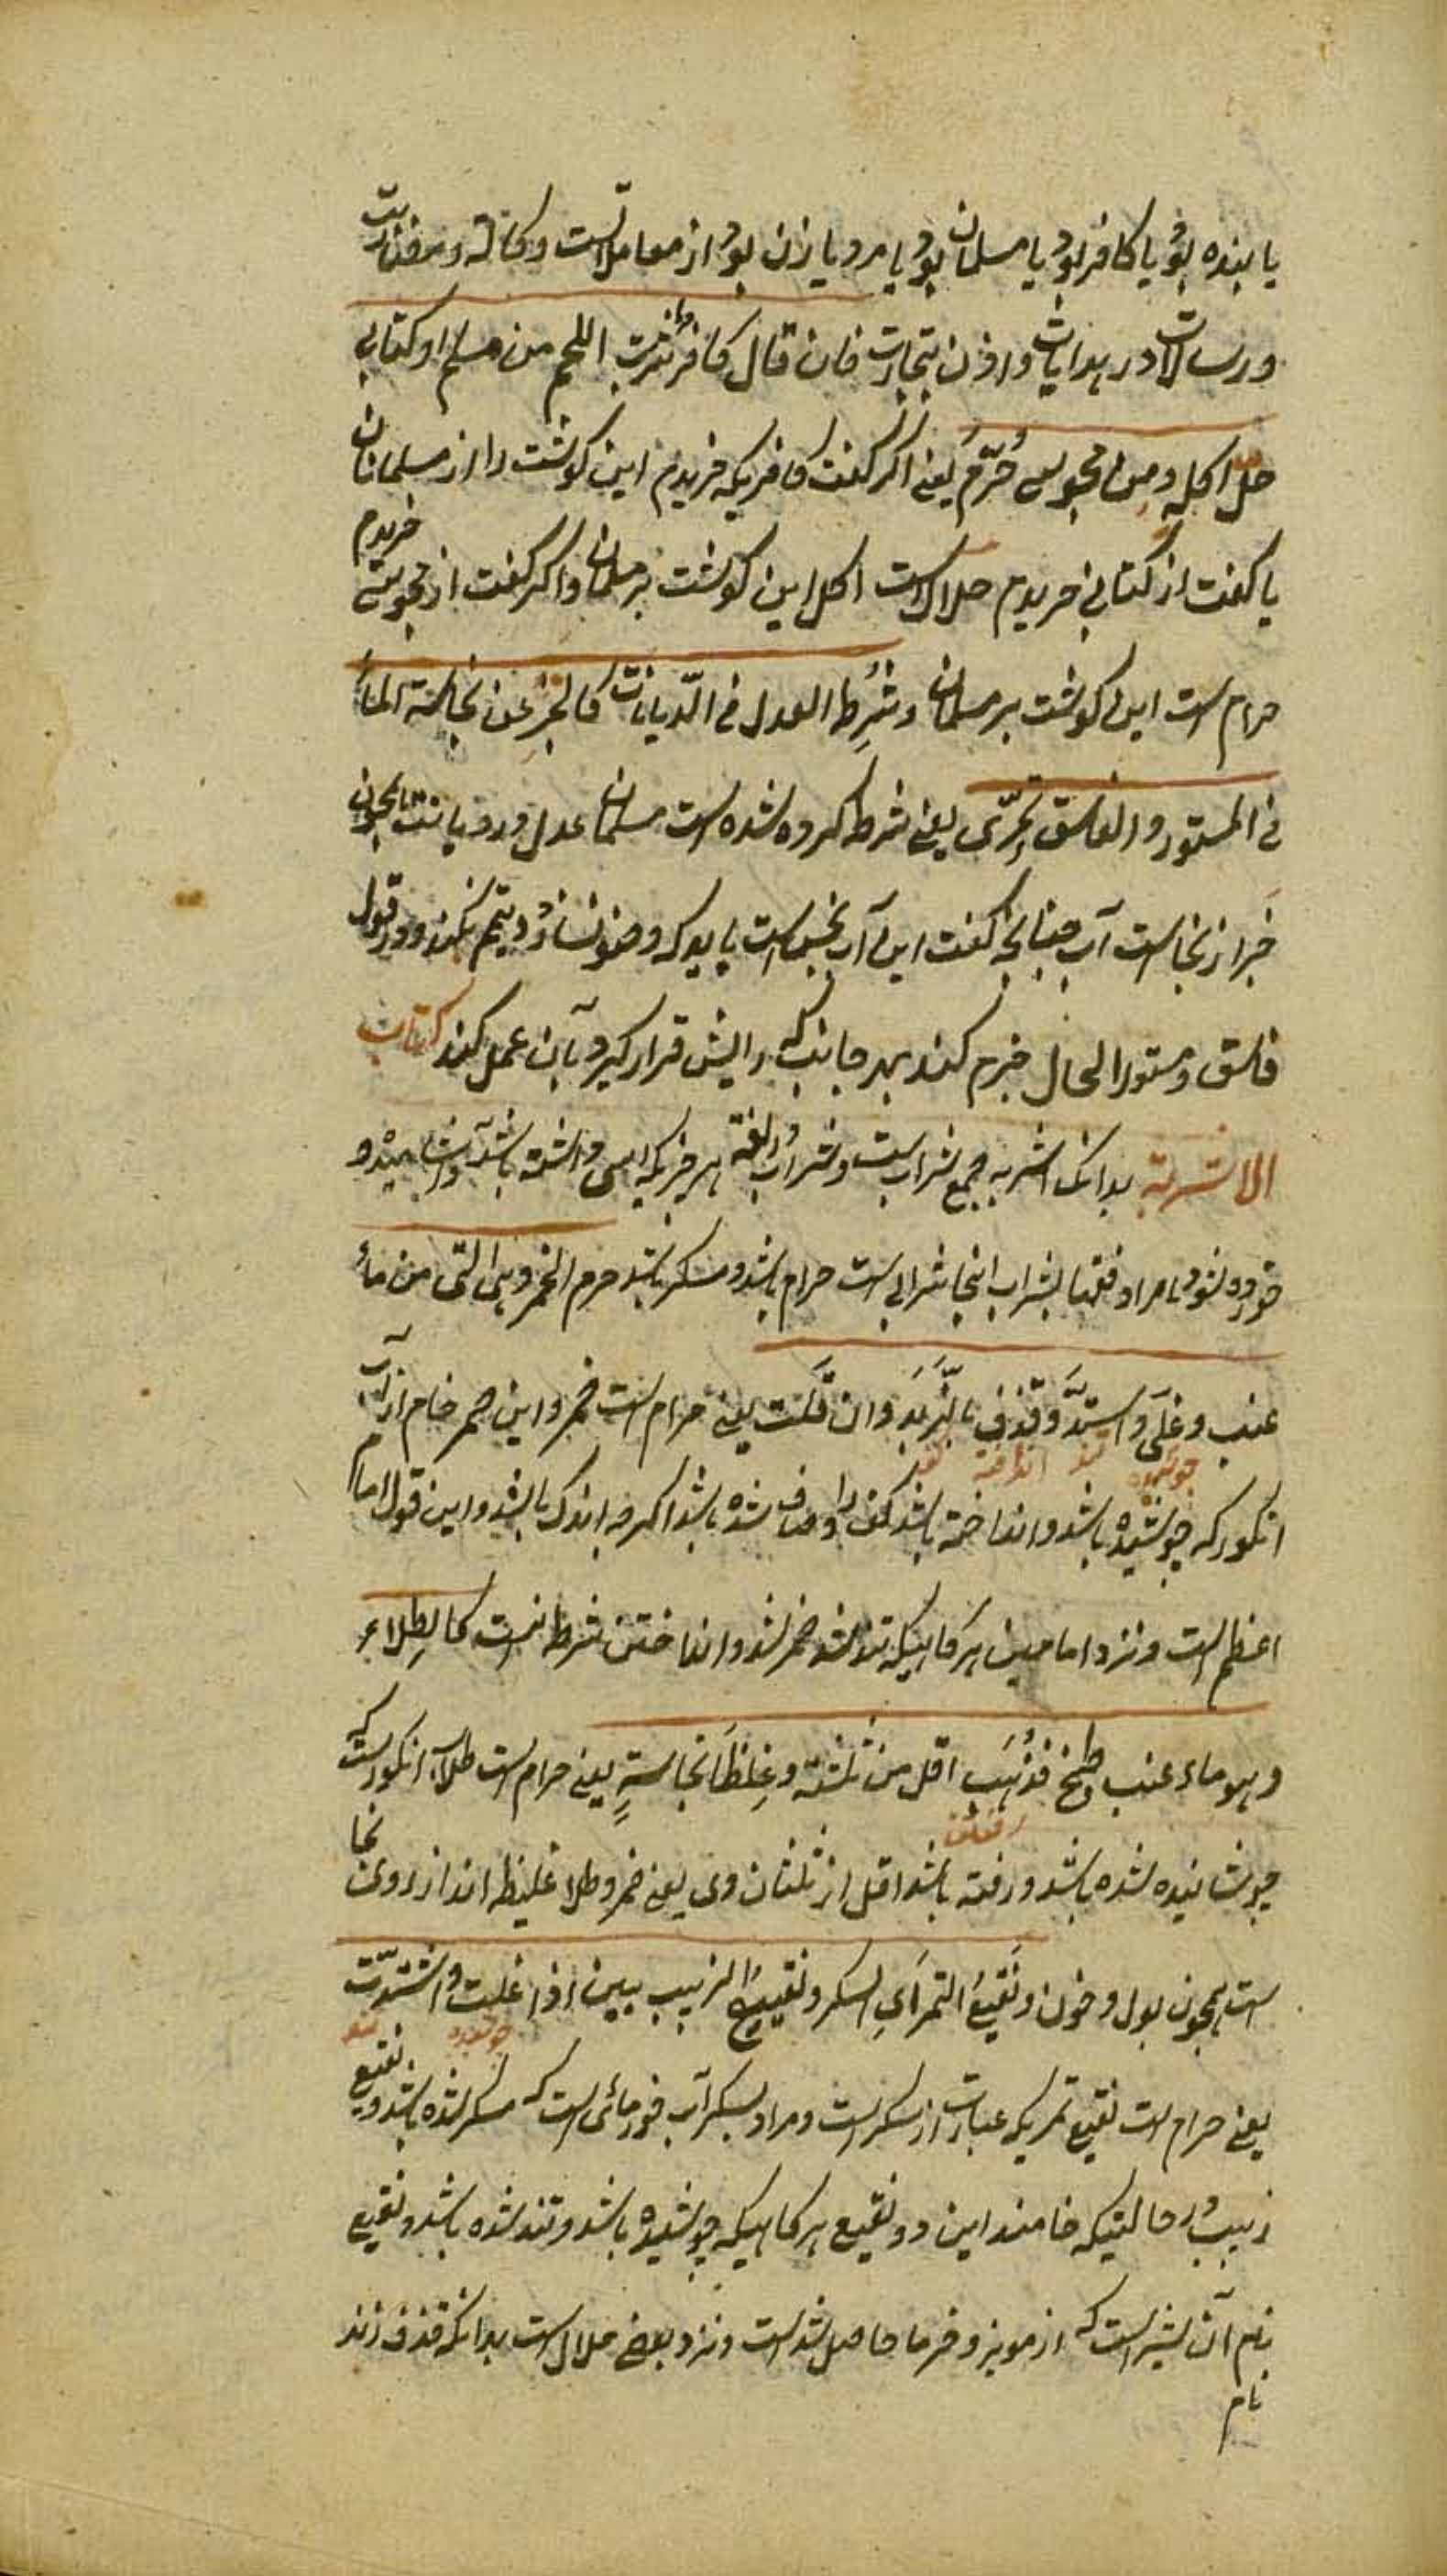 یا بنده بود یا کافر بود یا مسلمان بود یا مرد یا زن بود از معاملاتست وکالة و مضاربت
و رسالات در هدایات و اذن تجارت فان قال کافر شریت اللحم من مسلم او کتابی
حل اکله و من مجوسی حُرّم یعنی اگر گفت کافریکه خریدم این گوشت را از مسلمانان
یا گفت از کتابی خریدم حلالست اکل این گوشت بر مسلمان و اگر گفت از مجوسی خریدم
حرام است این گوشت بر مسلمان و شُرِط العدل فی الدّیانات کالخبر عن نجاسة الماء
فی المستور و الفاسق تحرّی یعنی شرط کرده شده است مسلمان عدل در دیانت همچون
خبر از نجاست آب چنانچه گفت این آب نجس است باید که وضو نسازد و تیمم بکند و در قول
فاسق و مستور الحال جزم کند بهر جانب که رایش قرار گیرد بآن عمل کند کتاب
الاشربة بدانک اشربه جمع شراب است و شراب در لغة هر چیزیکه باشد آشامیده و
خورده شود اما مراد فقها بشراب اینجا شرابی است حرام باشد و مسکر باشد حرم الخمر وهی التی من ماء
عنب و غلی و اشتدّ و قذف بالزّبد وان قلّت یعنی حرام است خمر و این خمر خام از آب
جوشیده تند انداخته کف
انگور که جوشیده باشد و انداخته باشد کف را و صاف شده باشد اگر چه اندک باشد و این قول امام
اعظم است و نزد امامین هر گاهیکه تند شد خمر شد و انداختن شرط نیست کالطلاء
وهو ماء عنب طُبخ فذهب اقل من ثلثیه و غلظا نجاسةٍ یعنی حرام است طلا آب انگورست که
رفته کف
جوشانیده شده باشد و رفته باشد اقل از ثلثان وی یعنی خمر و طلا غلیظه اند از روی نجا
ست همچون بول و خون و نقیع التمر ای السکر و نقیع الزبیب نیین اذا غلت و اشتدّت
جوشیده تند
یعنی حرام است نقیع تمریکه عبارت از سکر است و مراد بسکر آب خرمائی است که مسکر شده باشد و نقیع
زبیب در حالتیکه خامند این دو نقیع هر گاهیکه جوشیده باشد و تند شده باشد و نقیع
نام آن شیر است که از مویز و خرما حاصل شده است و نزد بعضی حلال است بدانکه قذف زبد
نام